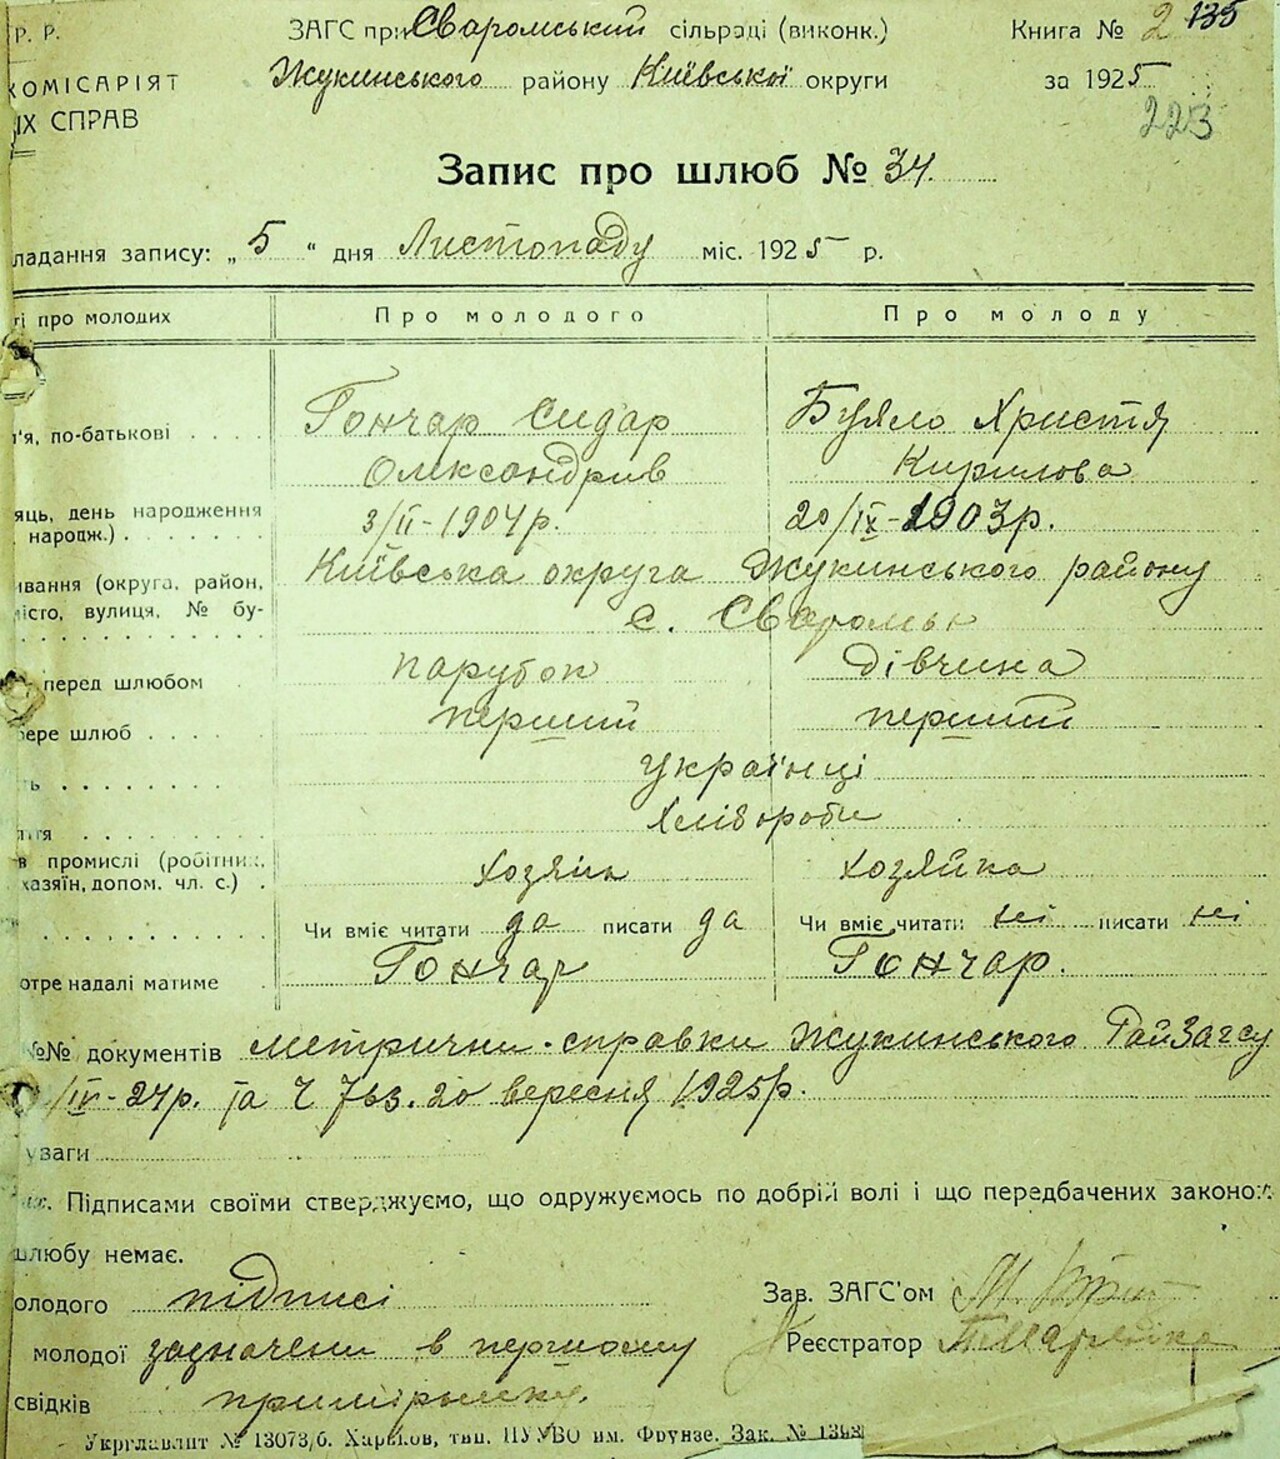 Р. Р. ЗАГС при Сваромський сільраді (виконк.) Книга № 2 135
КОМІСАРІЯТ Жукинського району Київської округи за 1925
ІХ СПРАВ 223
Запис про шлюб № 34.
ладання запису: „5“ дня Листопаду міс. 1925 р.
ті про молодих Про молодого Про молоду
'я, по-батькові . . . . Гончар Сидар Буяло Христя
Олександрив Кирилова
яць, день народження 3/ІІ-1904р. 20/ІХ-1903р.
народж.) . . . . . .
ивання (округа, район, Київська округа Жукинського району
місто, вулиця, № бу- с. Сваромьє
перед шлюбом парубок дівчина
бере шлюб . . . . перший перший
ть . . . . . . . . українці
ття . . . . . . . . . хлібороби
в промислі (робітник, хозяін хозяйка
хазяїн, допом. чл. с.) .
Чи вміє читати да писати да Чи вміє читати ні писати ні
отре надалі матиме Гончар Гончар.
№№ документів метрични справки Жукинського РайЗагсу
/ІІІ-24р. та Ч 763. 20 вересня 1925р.
уваги
Підписами своїми стверджуємо, що одружуємось по добрій волі і що передбачених законом
шлюбу немає.
олодого підписі Зав. ЗАГС'ом
молодої зазначени в першому Реєстратор
свідків примірнику.
Укрглавлит № 13073/б. Харьков, тип. ПУУВО им. Фрунзе. Зак. № 1393